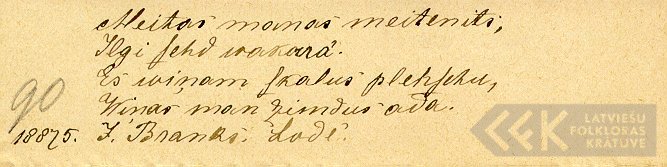 Meitas manas meitenits,
Ilgi sehd wakarâ.
Es wiņam skalus plehschu,
Wiņas man zimdus ada.
90
18875. J. Branks. Lodē.
LATVIEŠU
FOLKLORAS
KRĀTUVE